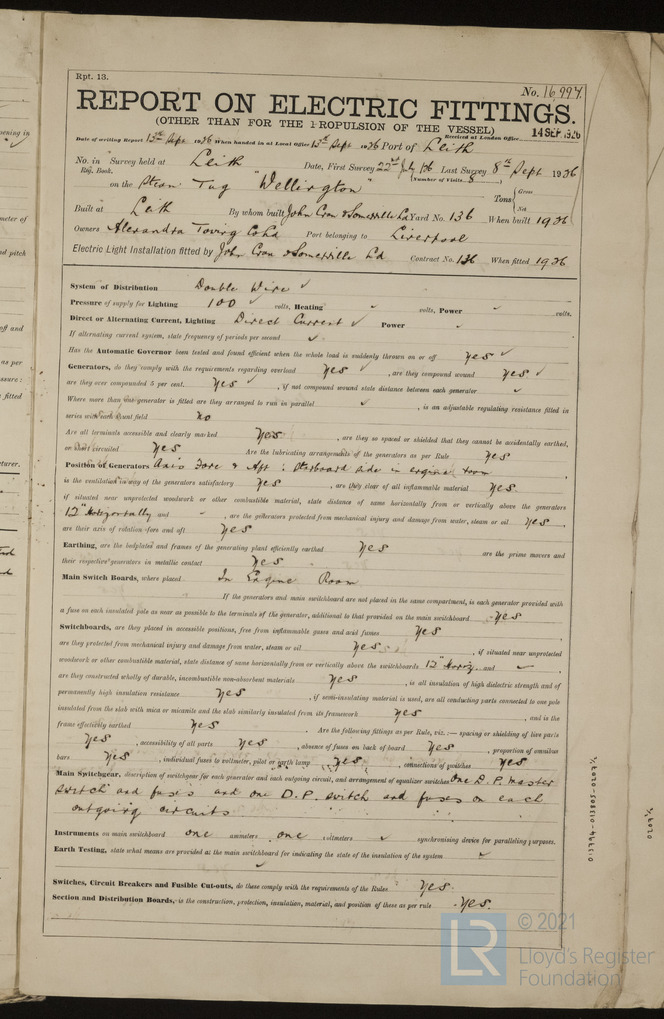 Rpt. 13.
No. 16997.
REPORT ON ELECTRIC FITTINGS.
(OTHER THAN FOR THE PROPULSION OF THE VESSEL)
Received at London Office 14 SEP. 1936
Date of writing Report 13th Sept 1936 When handed in at Local Office 13th Sept 1936 Port of Leith
No. in Survey held at Leith Date, First Survey 22nd July '36 Last Survey 8th Sept 1936
Reg. Book. (Number of Visits 8)
on the Steam Tug "Wellington" Tons { Gross
Net
Built at Leith By whom built John Cran & Somerville Ld Yard No. 136 When built 1936
Owners Alexandra Towing Co Ld Port belonging to Liverpool
Electric Light Installation fitted by John Cran & Somerville Ld Contract No. 136 When fitted 1936
System of Distribution Double Wire ✓
Pressure of supply for Lighting 100 ✓ volts, Heating ✓ volts, Power ✓ volts.
Direct or Alternating Current, Lighting Direct Current ✓ Power ✓
If alternating current system, state frequency of periods per second ✓
Has the Automatic Governor been tested and found efficient when the whole load is suddenly thrown on or off Yes ✓
Generators, do they comply with the requirements regarding overload Yes ✓, are they compound wound Yes ✓
are they over compounded 5 per cent. Yes ✓, if not compound wound state distance between each generator ✓
Where more than one generator is fitted are they arranged to run in parallel ✓, is an adjustable regulating resistance fitted in
series with each shunt field No
Are all terminals accessible and clearly marked Yes, are they so spaced or shielded that they cannot be accidentally earthed,
or short circuited Yes Are the lubricating arrangements of the generators as per Rule Yes
Position of Generators Axis Fore & Aft : Starboard side in engine room
is the ventilation in way of the generators satisfactory Yes, are they clear of all inflammable material Yes
if situated near unprotected woodwork or other combustible material, state distance of same horizontally from or vertically above the generators
12" Horizontally and -, are the generators protected from mechanical injury and damage from water, steam or oil Yes,
are their axis of rotation fore and aft Yes
Earthing, are the bedplates and frames of the generating plant efficiently earthed Yes are the prime movers and
their respective generators in metallic contact Yes
Main Switch Boards, where placed In Engine Room
If the generators and main switchboard are not placed in the same compartment, is each generator provided with
a fuse on each insulated pole as near as possible to the terminals of the generator, additional to that provided on the main switchboard Yes
Switchboards, are they placed in accessible positions, free from inflammable gases and acid fumes Yes,
are they protected from mechanical injury and damage from water, steam or oil Yes, if situated near unprotected
woodwork or other combustible material, state distance of same horizontally from or vertically above the switchboards 12" Horiz. and ✓,
are they constructed wholly of durable, incombustible non-absorbent materials Yes, is all insulation of high dielectric strength and of
permanently high insulation resistance Yes, if semi-insulating material is used, are all conducting parts connected to one pole
insulated from the slab with mica or micanite and the slab similarly insulated from its framework Yes, and is the
frame effectively earthed Yes. Are the following fittings as per Rule, viz.:— spacing or shielding of live parts
Yes, accessibility of all parts Yes, absence of fuses on back of board Yes, proportion of omnibus
bars Yes, individual fuses to voltmeter, pilot or earth lamp Yes, connections of switches Yes
Main Switchgear, description of switchgear for each generator and each outgoing circuit, and arrangement of equalizer switches One D.P. master
switch and fuses and one D.P. switch and fuses on each
outgoing circuits
Instruments on main switchboard one ammeters one voltmeters ✓ synchronising device for paralleling purposes.
Earth Testing, state what means are provided at the main switchboard for indicating the state of the insulation of the system ✓
✓
Switches, Circuit Breakers and Fusible Cut-outs, do these comply with the requirements of the Rules Yes.
Section and Distribution Boards, is the construction, protection, insulation, material, and position of these as per rule Yes.
013794-013803-0207½
0207½
© 2021
LR Lloyd's Register
Foundation